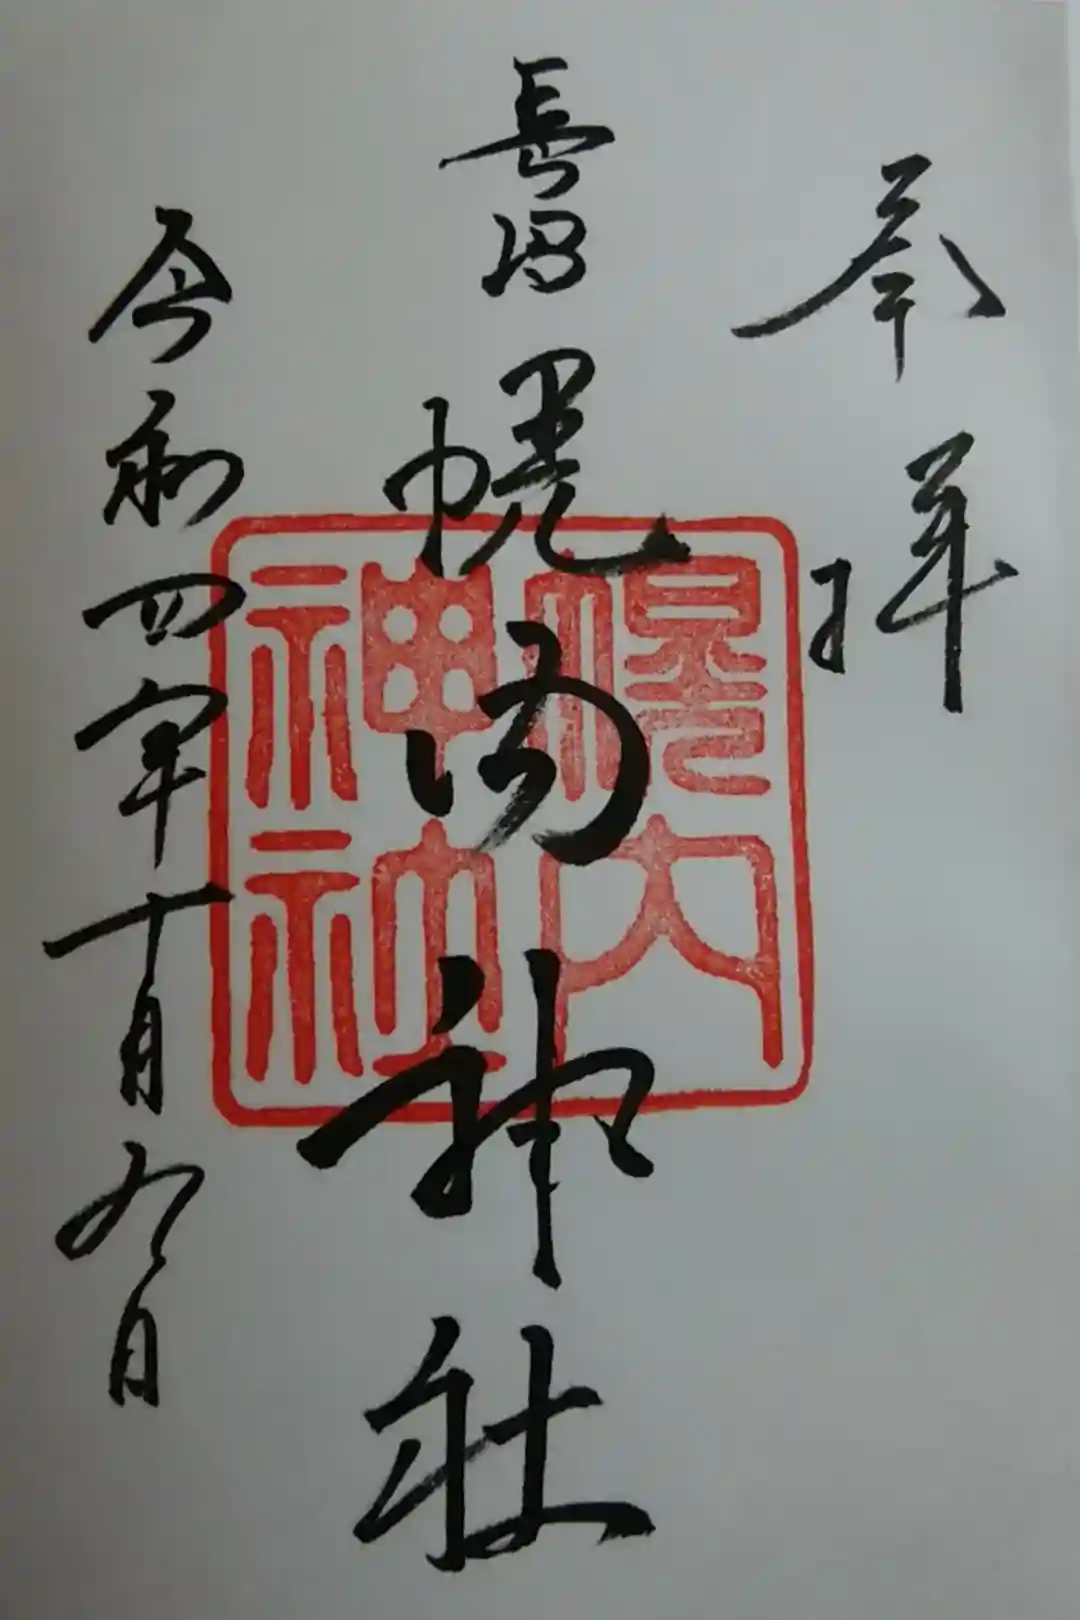 奉拝
長沼
幌内神社
幌内神社
令和四年十月九日